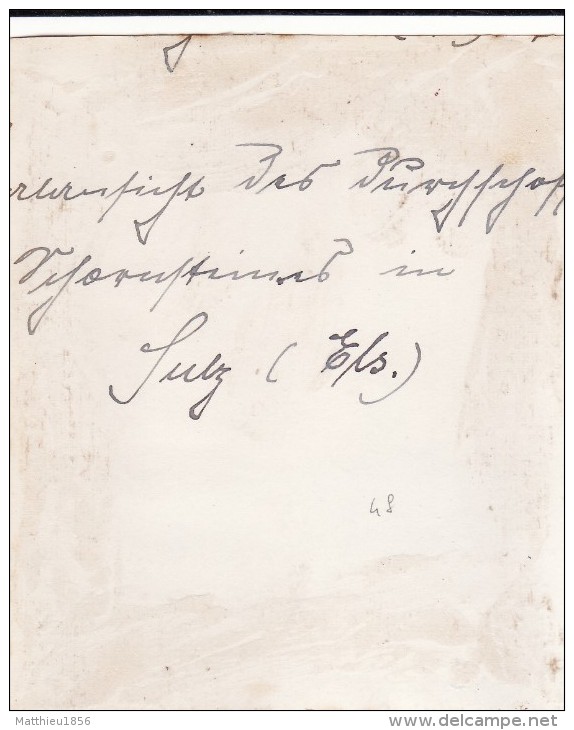 des durchschos
Schornsteines in
Sulz (Els.)
48
Matthieu1856
www.delcampe.net